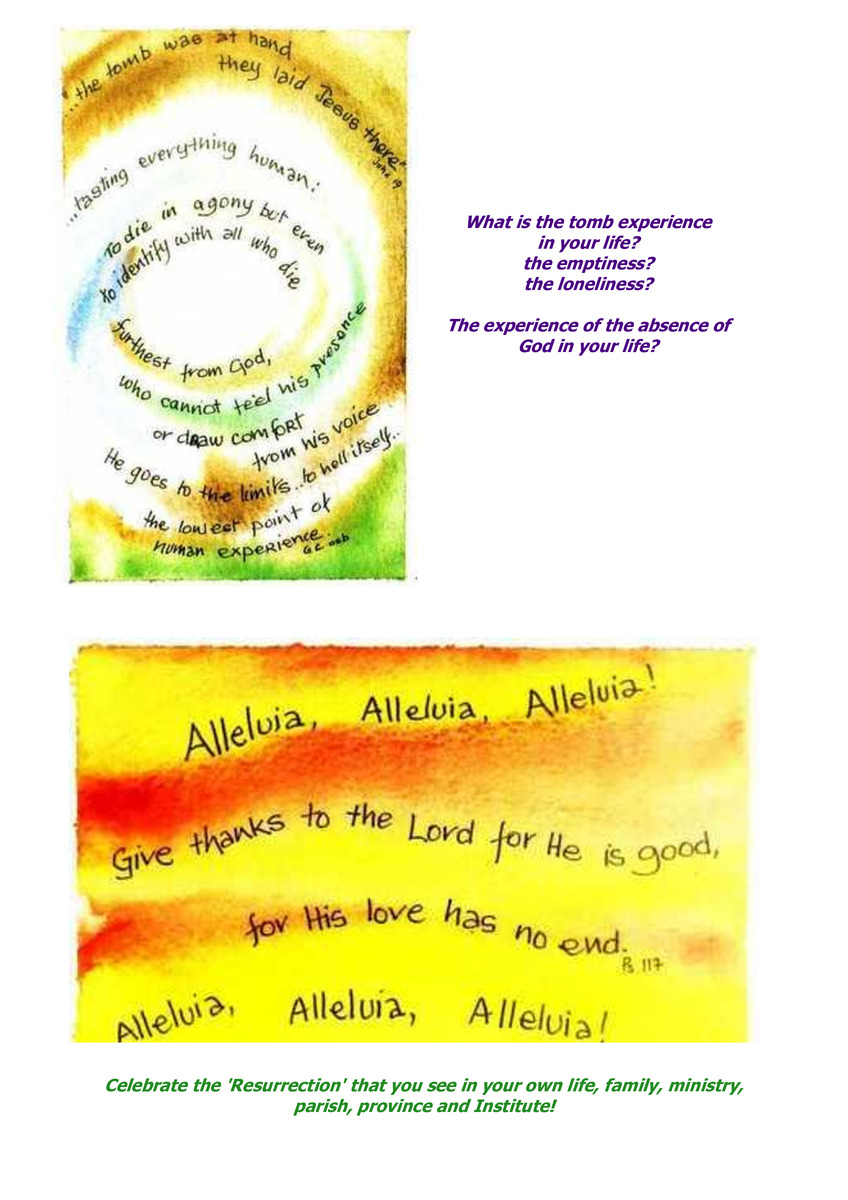 "...the tomb was at hand
they laid Jesus there"
John 19
...tasting everything human:
To die in agony but even
to identify with all who die
furthest from God,
who cannot feel his presence
or draw comfort
from his voice
He goes to the limits...to hell itself..
the lowest point of
human experience.
G.C. osb
What is the tomb experience
in your life?
the emptiness?
the loneliness?
The experience of the absence of
God in your life?
Alleluia, Alleluia, Alleluia!
Give thanks to the Lord for He is good,
for His love has no end.
Ps 117
Alleluia, Alleluia, Alleluia!
Celebrate the 'Resurrection' that you see in your own life, family, ministry,
parish, province and Institute!